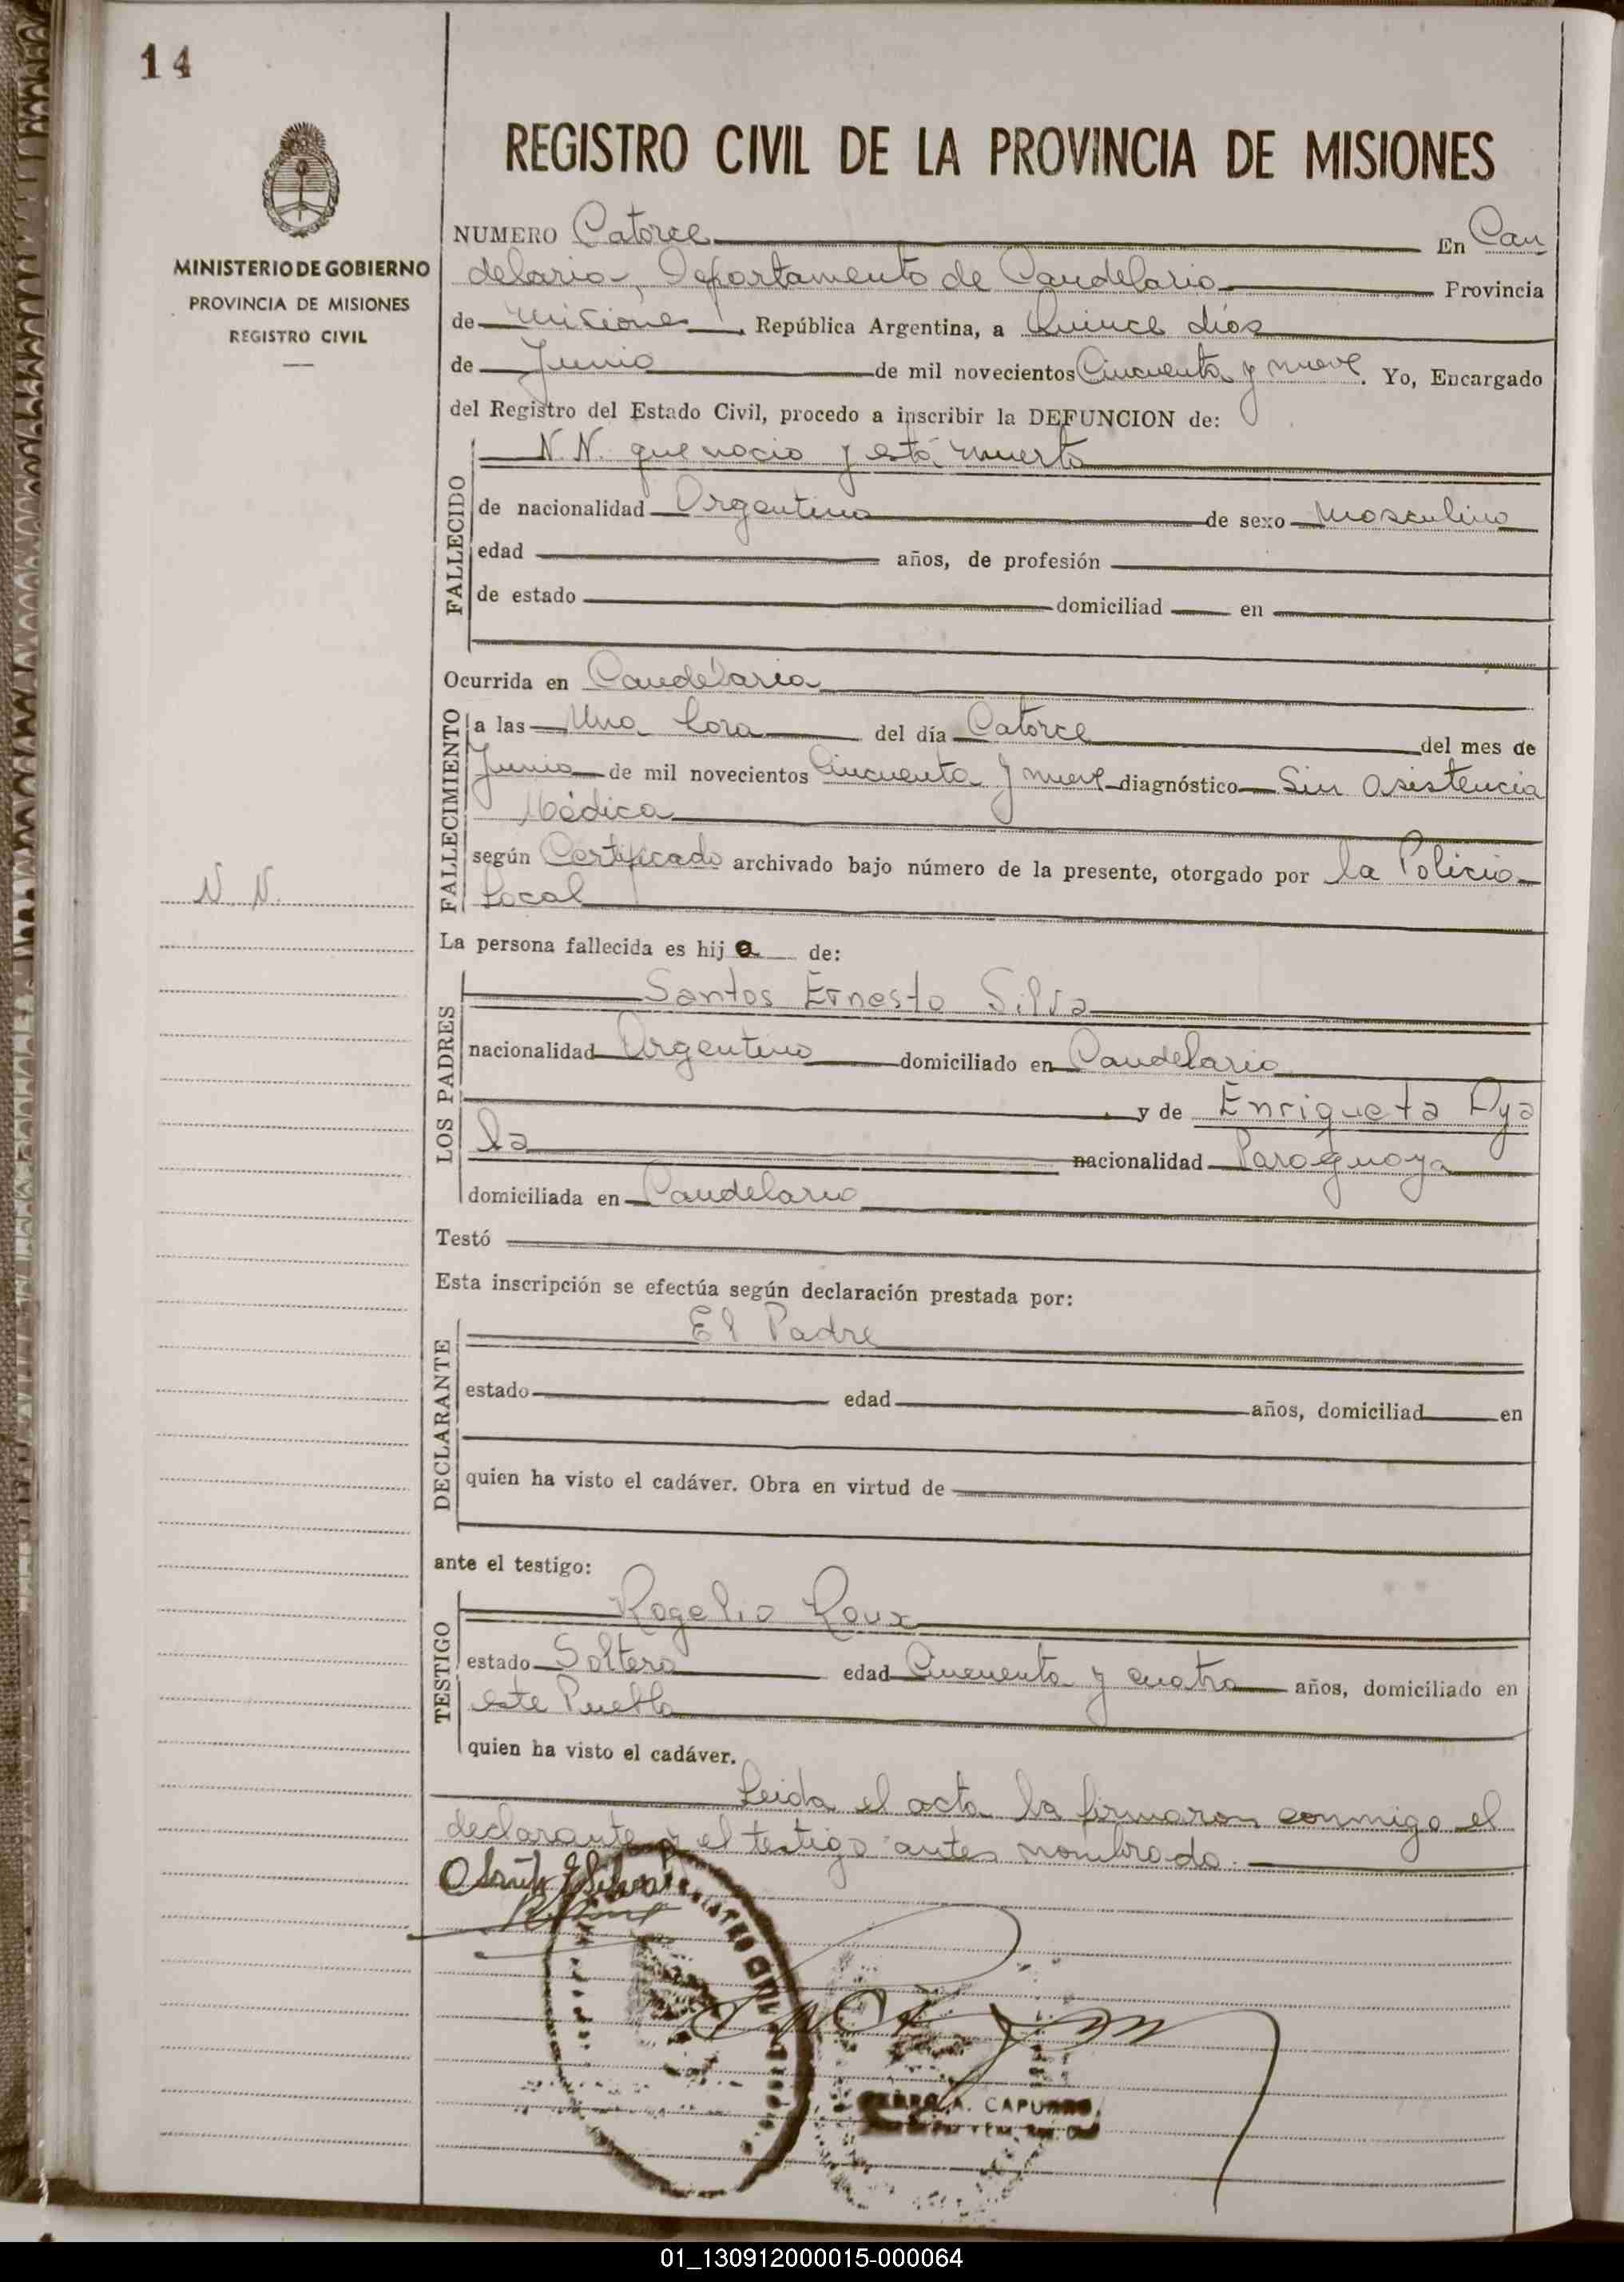 14
MINISTERIO DE GOBIERNO
PROVINCIA DE MISIONES
REGISTRO CIVIL
REGISTRO CIVIL DE LA PROVINCIA DE MISIONES
NUMERO Catorce En Can
delaria, Departamento de Candelaria Provincia
de Misiones, República Argentina, a Quince días
de Junio de mil novecientos Cincuenta y nueve. Yo, Encargado
del Registro del Estado Civil, procedo a inscribir la DEFUNCION de:
FALLECIDO
N. N. que nacio y está muerto
de nacionalidad Argentina de sexo Masculino
edad años, de profesión
de estado domiciliad en
Ocurrida en Candelaria
FALLECIMIENTO
a las Una hora del día Catorce del mes de
Junio de mil novecientos Cincuenta y nueve diagnóstico Sin Asistencia
Médica
según Certificado archivado bajo número de la presente, otorgado por la Policia
Local
N. N.
La persona fallecida es hij o de:
LOS PADRES
Santos Ernesto Silva
nacionalidad Argentino domiciliado en Candelaria
y de Enriqueta Aya
la nacionalidad Paraguaya
domiciliada en Candelaria
Testó
Esta inscripción se efectúa según declaración prestada por:
DECLARANTE
El Padre
estado edad años, domiciliad en
quien ha visto el cadáver. Obra en virtud de
ante el testigo:
TESTIGO
Rogelio Roux
estado Soltero edad Cincuenta y cuatro años, domiciliado en
este Pueblo
quien ha visto el cadáver.
Leida el acta la firmaron conmigo el
declarante y el testigo antes nombrado.
A. CAPURRO
01_130912000015-000064